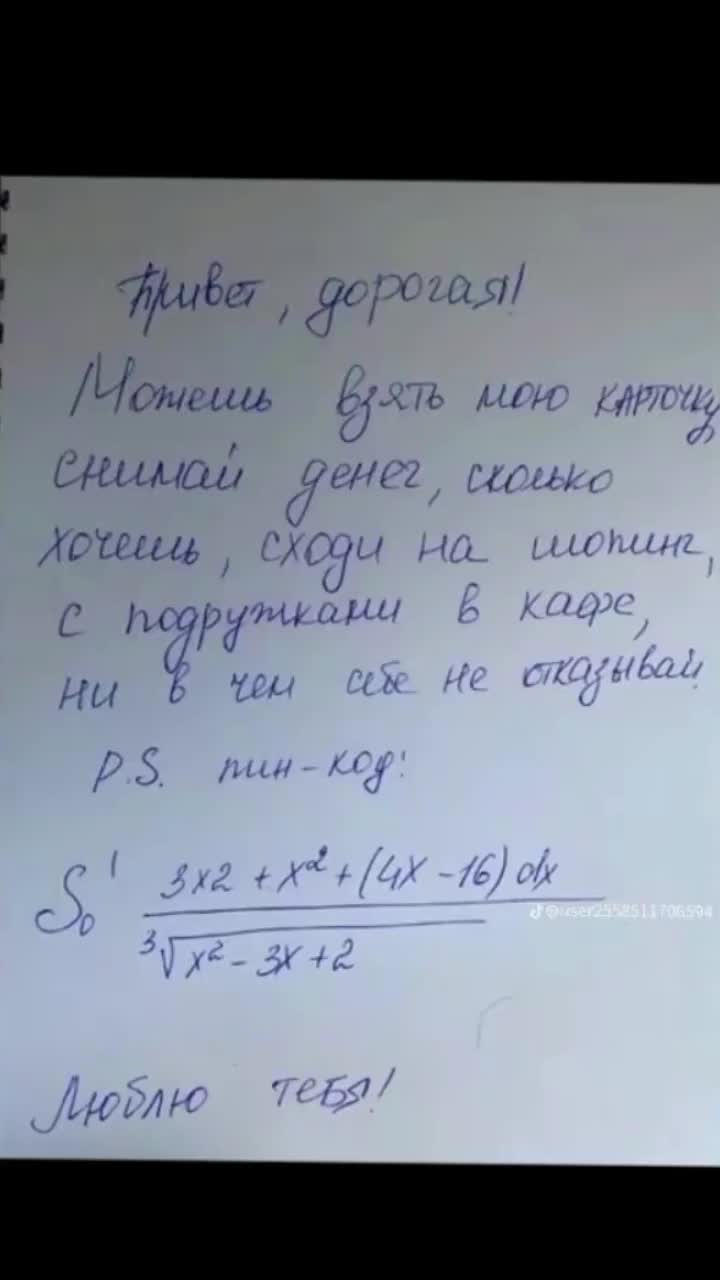 Привет, дорогая!
Можешь взять мою карточку
снимай денег, сколько
хочешь, сходи на шопинг,
с подружками в кафе,
ни в чем себе не отказывай
P.S. пин-код:
∫₀¹ 3x2 + x² + (4x - 16) dx
∛x² - 3x + 2
@user2558511706594
Люблю тебя!